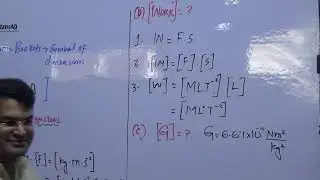 Brackets → Symbol of
dimension
[F] = [kg·m·s²]
(b) [WORK] = ?
1. W = F S
2. [W] = [F] [S]
3. [W] = [MLT⁻²] [L]
= [ML²T⁻²]
(c) [G] = ? G = 6.67×10⁻¹¹ Nm²/kg²